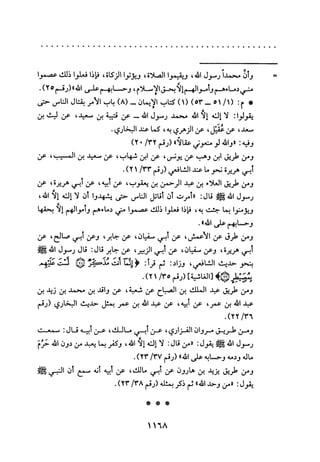 = وأنَّ محمداً رسول الله، ويقيموا الصلاة، ويؤتوا الزكاة، فإذا فعلوا ذلك عصموا
مني دماءهم وأموالهم إلَّا بحق الإسلام، وحسابهم على الله» (رقم ٢٥).
* م: (١/ ٥١ – ٥٣) (١) كتاب الإيمان – (٨) باب الأمر بقتال الناس حتى
يقولوا: لا إله إلَّا الله محمد رسول الله – عن قتيبة بن سعيد، عن ليث بن
سعد، عن عُقَيْل، عن الزهري به، كما عند البخاري.
وفيه: «والله لو منعوني عقالاً» (رقم ٣٢/ ٢٠)
ومن طريق ابن وهب عن يونس، عن ابن شهاب، عن سعيد بن المسيب، عن
أبي هريرة نحو ما عند الشافعي (رقم ٣٣/ ٢١).
ومن طريق العلاء بن عبد الرحمن بن يعقوب، عن أبيه، عن أبي هريرة، عن
رسول الله ﷺ قال: «أمرت أن أقاتل الناس حتى يشهدوا أن لا إله إلَّا الله،
ويؤمنوا بما جئت به، فإذا فعلوا ذلك عصموا مني دماءهم وأموالهم إلَّا بحقها
وحسابهم على الله».
ومن طرق عن الأعمش، عن أبي سفيان، عن جابر، وعن أبي صالح، عن
أبي هريرة، وعن سفيان، عن أبي الزبير، عن جابر قال: قال رسول الله ﷺ
بنحو حديث الشافعي، وزاد: ثم قرأ: ﴿إِنَّمَا أَنتَ مُذَكِّرٌ ۝ لَّسْتَ عَلَيْهِم
بِمُصَيْطِرٍ﴾ [الغاشية] (رقم ٣٥/ ٢١).
ومن طريق عبد الملك بن الصباح عن شعبة، عن واقد بن محمد بن زيد بن
عبد الله بن عمر، عن أبيه، عن عبد الله بن عمر بمثل حديث البخاري (رقم
٣٦/ ٢٢).
ومن طريق مروان الفزاري، عن أبي مالك، عن أبيه قال: سمعت
رسول الله ﷺ يقول: «من قال: لا إله إلَّا الله، وكفر بما يعبد من دون الله حَرُمَ
ماله ودمه وحسابه على الله» (رقم ٣٧/ ٢٣).
ومن طريق يزيد بن هارون عن أبي مالك، عن أبيه أنه سمع أن النبي ﷺ
يقول: «من وحد الله» ثم ذكر بمثله (رقم ٣٨/ ٢٣).
* * *
١١٦٨